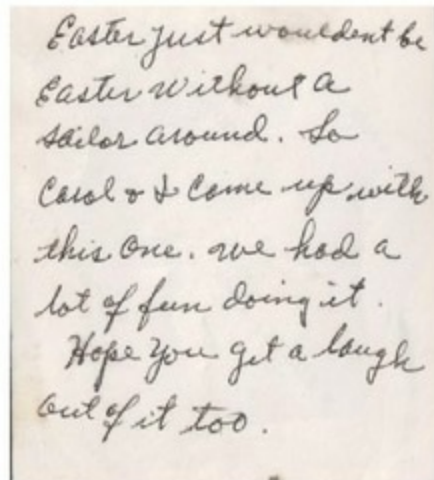 Easter just wouldent be
Easter without a
sailor around. So
Carol & I came up with
this one. we had a
lot of fun doing it.
Hope you get a laugh
out of it too.